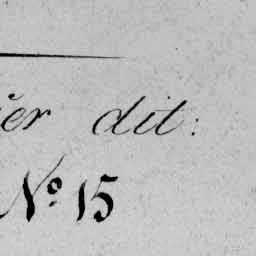 er dit:
Nº 15